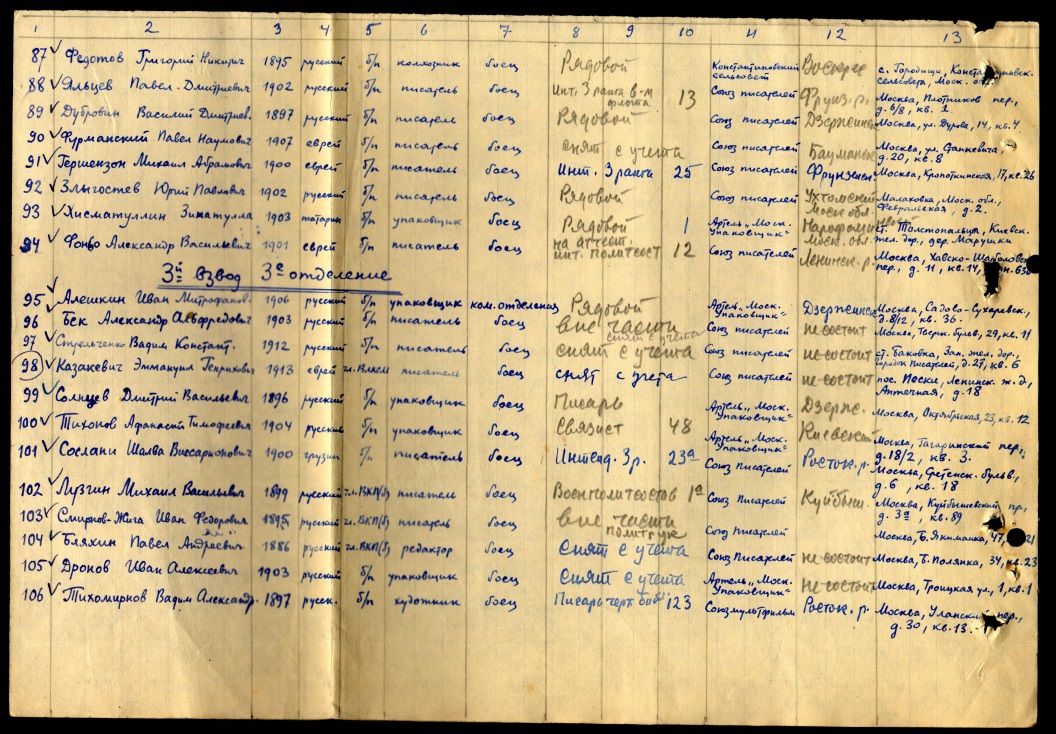 1 2 3 4 5 6 7 8 9 10 11 12 13
87 Федотов Григорий Никитич 1895 русский б/п колхозник боец Рядовой Константиновский сельсовет с. Городищи,
88 Яльцев Павел Дмитриевич 1902 русский б/п писатель боец Инт. 3 ранга в-м флота 13 Союз писателей Фрунз. р. Москва, Плотников пер., д. 6/8, кв. 1
89 Дубровин Василий Дмитриев. 1897 русский б/п писатель боец Рядовой Союз писателей Дзержинск Москва, ул. Дурова, 14, кв. 4
90 Фурманский Павел Наумович 1907 еврей б/п писатель боец снят с учета Союз писателей Бауманск Москва, ул. Фанкевича, д. 20, кв. 8
91 Гершензон Михаил Абрамович 1900 еврей б/п писатель боец Инт. 3 ранга 25 Союз писателей Фрунженск Москва, Кропоткинская, 17, кв. 26
92 Злыгостев Юрий Павлович 1902 русский б/п писатель боец Рядовой Союз писателей Ухтомский Моск. обл. Малаховка, Моск. обл., Февральская, д. 2.
93 Хисматуллин Зиматулла 1903 татарин б/п упаковщик боец Рядовой 1 Артель „Моск. Упаковщик" Моск. обл. ст. Толстопальца, Киевск. жел. дор., дер. Марушки
94 Фоньо Александр Васильевич 1901 еврей б/п писатель боец на аттест. инт. политсост 12 Союз писателей Ленинск. р. Москва, Хавско-Шаболовск. пер., д. 11, кв. 14,
3й взвод 3е отделение
95 Алешкин Иван Митрофанов. 1906 русский б/п упаковщик ком. отделения Рядовой Артель „Моск. Упаковщик" Дзержинск Москва, Садово-Сухаревск., д. 8/2, кв. 36.
96 Бек Александр Альфредович 1903 русский б/п писатель боец вне части снят с учета Союз писателей не состоит Москва, Тверск. бульв, 29, кв. 11
97 Стрельченко Вадим Констант. 1912 русский б/п писатель боец снят с учета Союз писателей не состоит ст. Баковка, Зап. жел. дор., Городок Писателей, д. 27, кв. 6
98 Казакевич Эммануил Генрихович 1913 еврей чл. ВЛКСМ писатель боец снят с учета Союз писателей не состоит пос. Пески, Ленинск. ж. д., Аптечная, д. 18
99 Солнцев Дмитрий Васильевич 1896 русский б/п упаковщик боец Писарь Артель „Моск. Упаковщик" Дзерж. Москва, Октябрьская, 23, кв. 12
100 Тихонов Афанасий Тимофеевич 1904 русский б/п упаковщик боец Связист 48 Артель „Моск. Упаковщик" Киевский Москва, Гагаринский пер., д. 18/2, кв. 3.
101 Сослани Шалва Виссарионович 1900 грузин б/п писатель боец Интенд. 3 р. 23а Союз Писателей Росток. р. Москва, Сретенск. бульв., д. 6, кв. 18
102 Лузгин Михаил Васильевич 1899 русский чл. ВКП(б) писатель боец Военполитсостав 1а Союз Писателей Куйбыш. Москва, Куйбышевский пр., д. 3а, кв. 89
103 Смирнов-Жига Иван Федорович 1895 русский чл. ВКП(б) писатель боец вне части политрук Союз Писателей Москва, Б. Якиманка, 47, 21
104 Бляхин Павел Андреевич 1886 русский чл. ВКП(б) редактор боец Снят с учета Союз Писателей не состоит Москва, Б. Полянка, 34, кв. 23
105 Дронов Иван Алексеевич 1903 русский б/п упаковщик боец Снят с учета Артель „Моск. Упаковщик" не состоит Москва, Троицкая ул., 1, кв. 1
106 Тихомиров Вадим Александр. 1897 русск. б/п художник боец Писарь черт. 123 Союзмультфильм Росток. р. Москва, Уланский пер., д. 30, кв. 13.